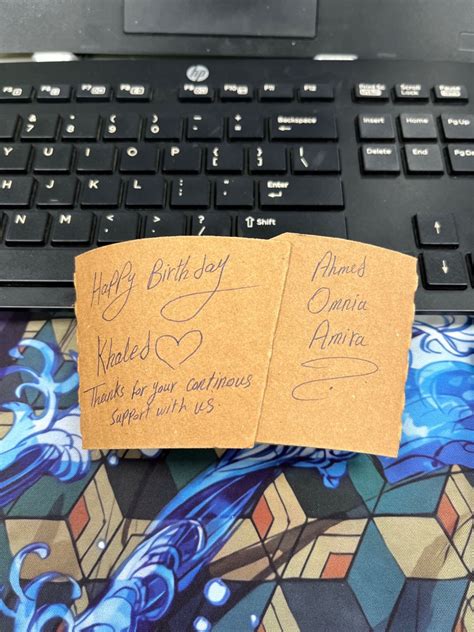 hp
F5 F6 F7 F8 F9 F10 F11 F12 Print Sc Scroll Lock Pause
& 7 * 8 ( 9 ) 0 _ - + = Backspace Insert Home PgUp
Y U I O P { [ } ] | \ Delete End PgDn
H J K L : ; " ' Enter
N M < , > . ? / Shift
Happy Birthday
Khaled ♡
Thanks for your continous
support with us
Ahmed
Omnia
Amira